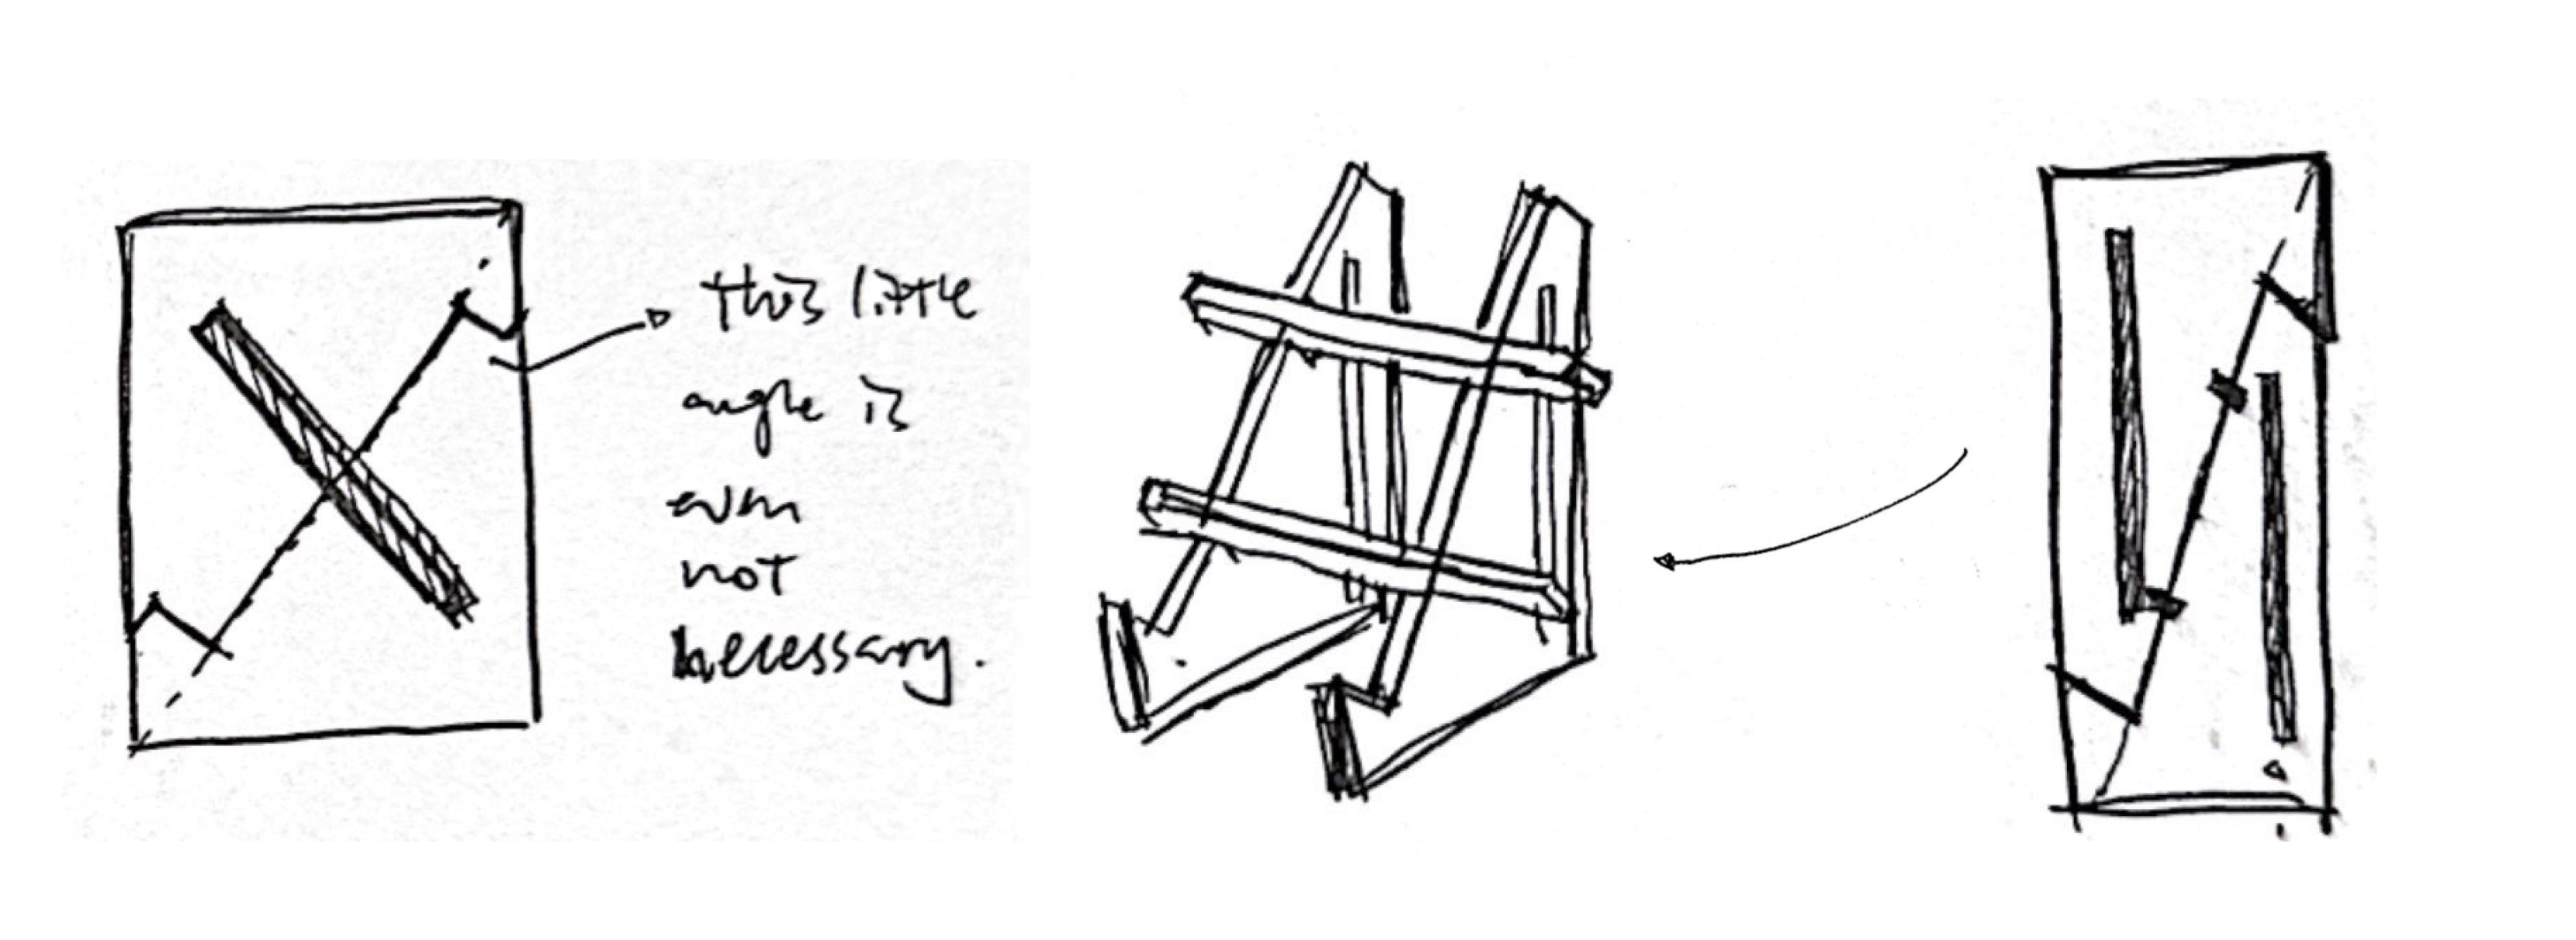 this little
angle is
even
not
necessary.